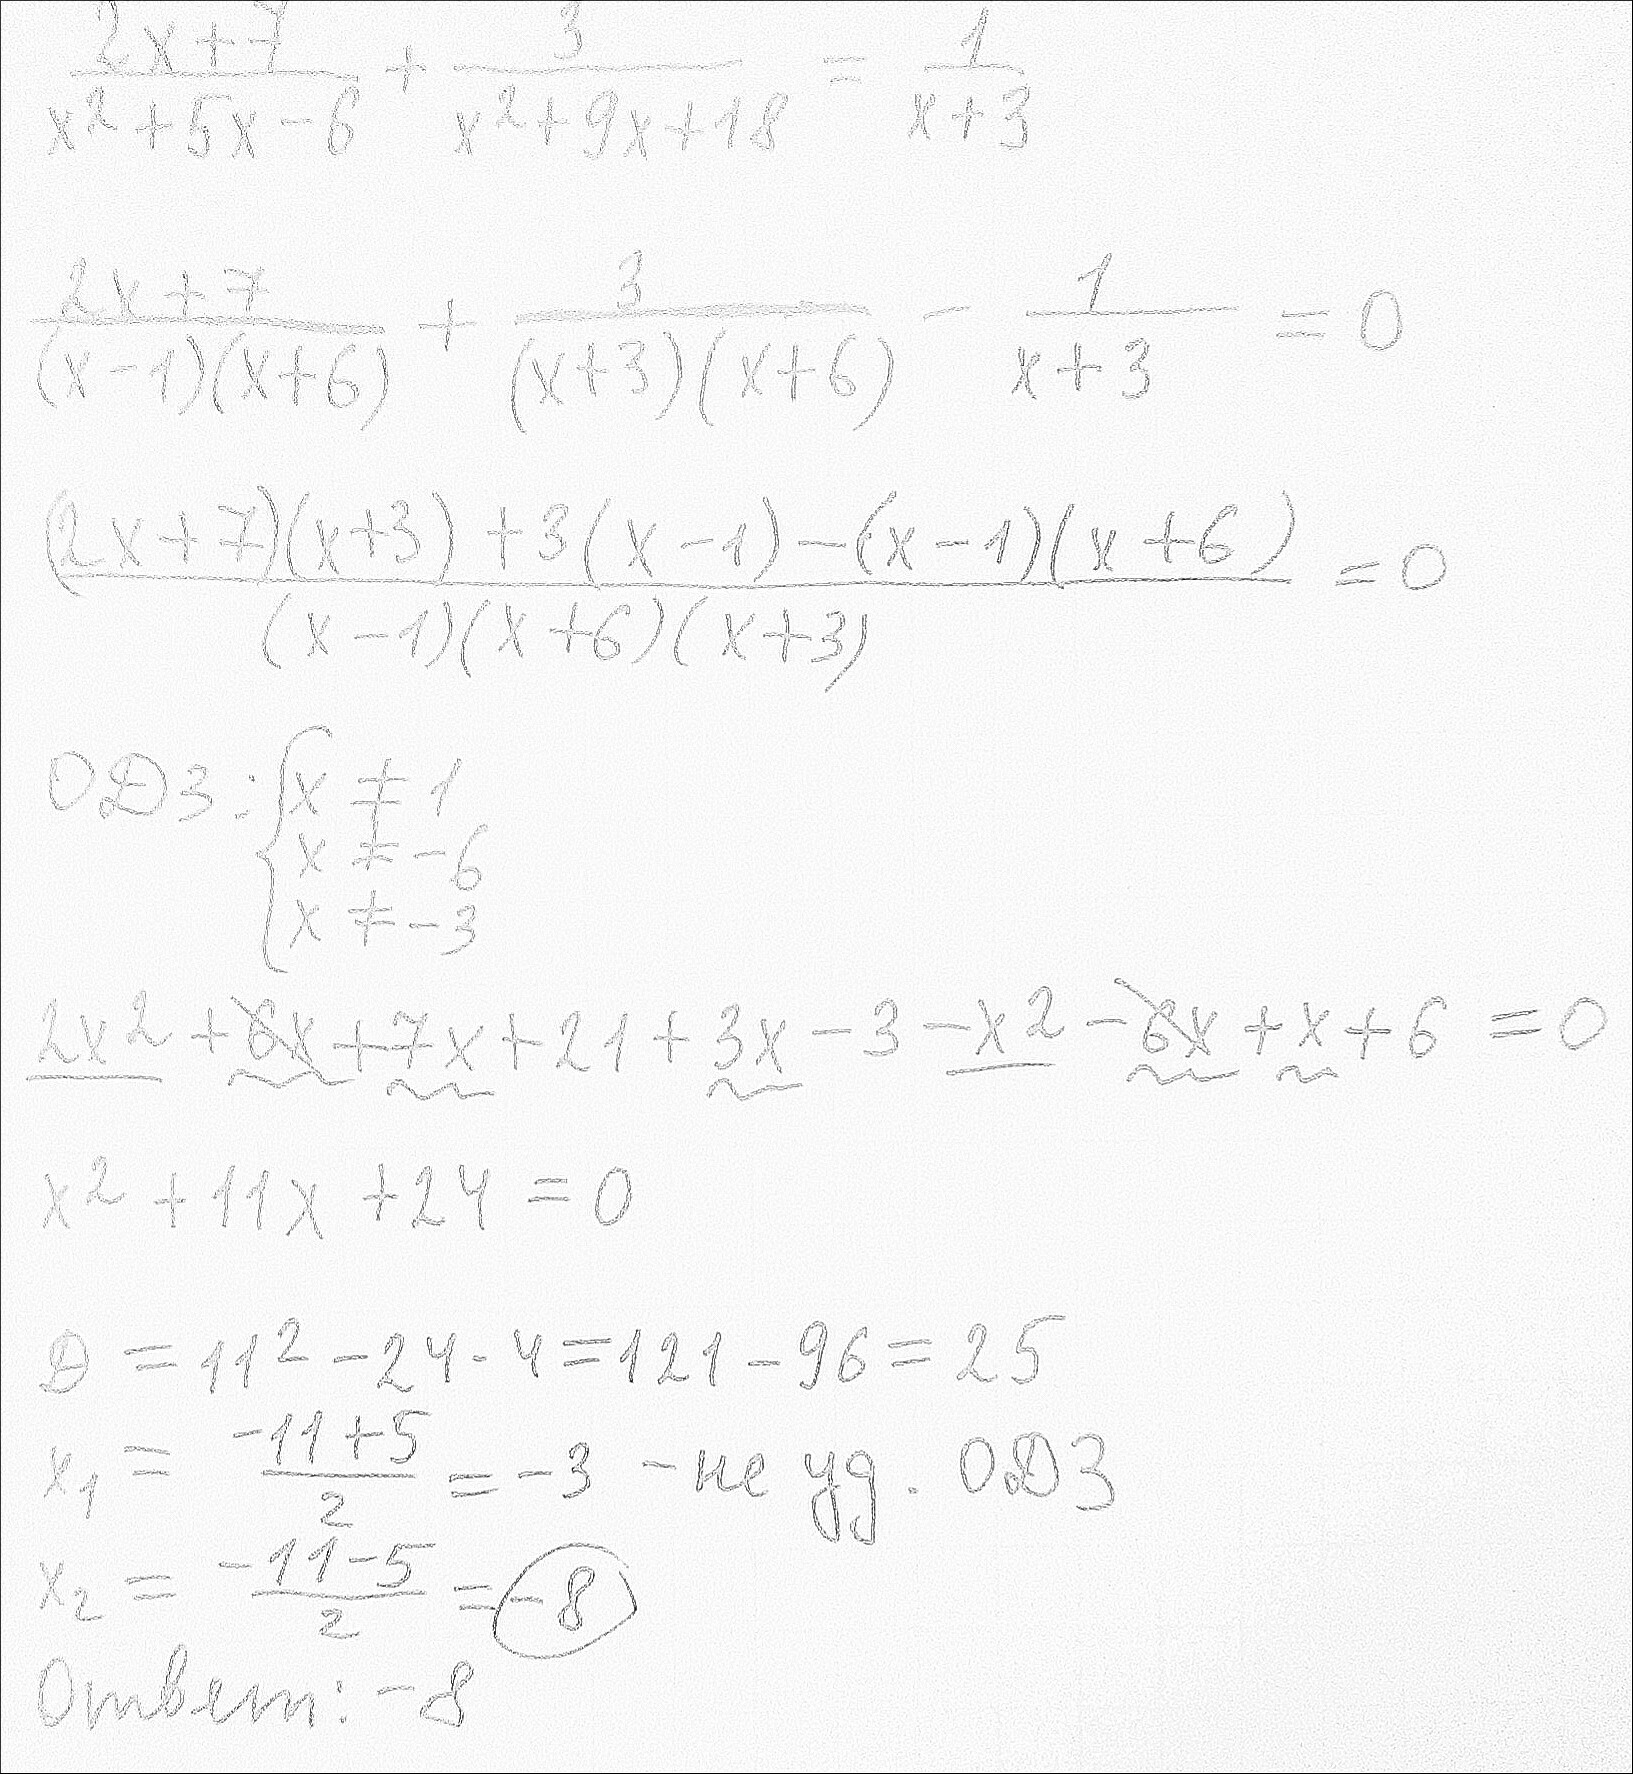 (2x+7)/(x²+5x-6) + 3/(x²+9x+18) = 1/(x+3)
(2x+7)/((x-1)(x+6)) + 3/((x+3)(x+6)) - 1/(x+3) = 0
((2x+7)(x+3)+3(x-1)-(x-1)(x+6))/((x-1)(x+6)(x+3)) = 0
ОДЗ: { x ≠ 1
x ≠ -6
x ≠ -3
2x² + 6x + 7x + 21 + 3x - 3 - x² - 6x + x + 6 = 0
x² + 11x + 24 = 0
D = 11² - 24 · 4 = 121 - 96 = 25
x₁ = (-11+5)/2 = -3 - не уд. ОДЗ
x₂ = (-11-5)/2 = -8
Ответ: -8